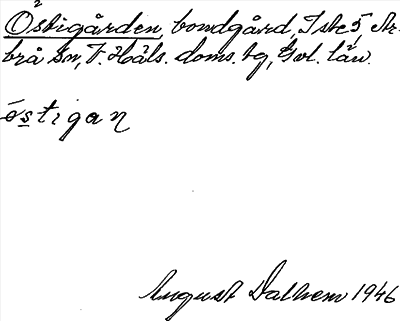 Östigården, bondgård, Iste 5, Ar-
brå Sn, V. Häls. doms. bg, Gvl. län.
östigan
August Dalhem 1946